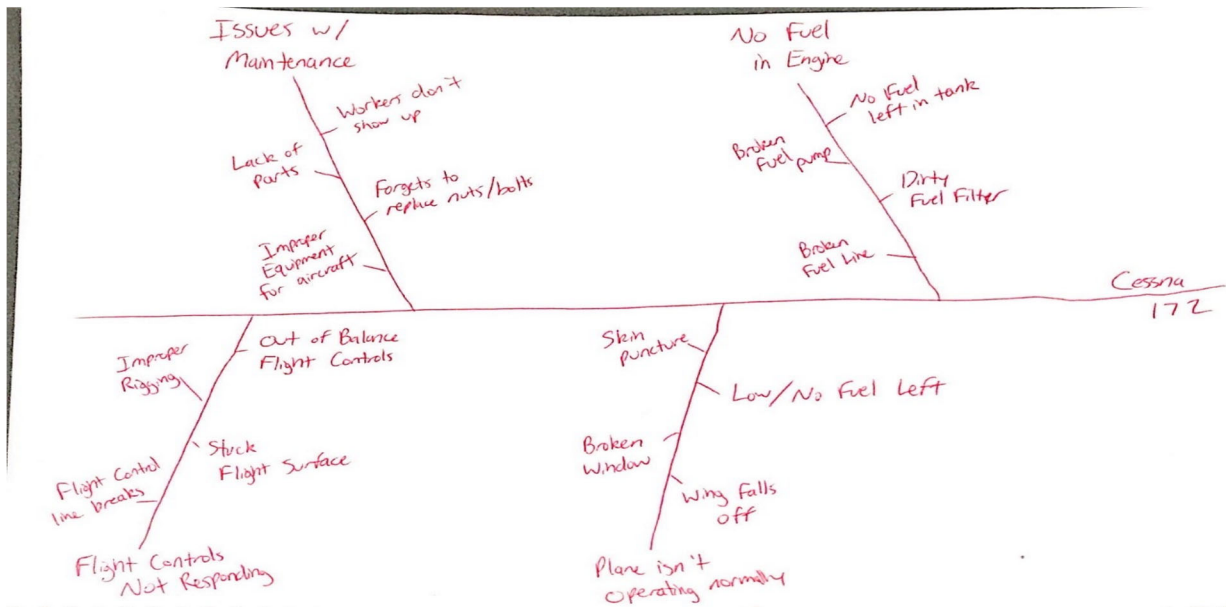 Issues w/
Maintenance
Workers don't
show up
Lack of
parts
Forgets to
replace nuts/bolts
Improper
Equipment
for aircraft
No Fuel
in Engine
No Fuel
left in tank
Broken
Fuel pump
Dirty
Fuel Filter
Broken
Fuel Line
Cessna
172
Out of Balance
Flight Controls
Improper
Rigging
Stuck
Flight Surface
Flight Control
line breaks
Flight Controls
Not Responding
Skin
puncture
Low/No Fuel Left
Broken
Window
Wing Falls
off
Plane isn't
operating normally